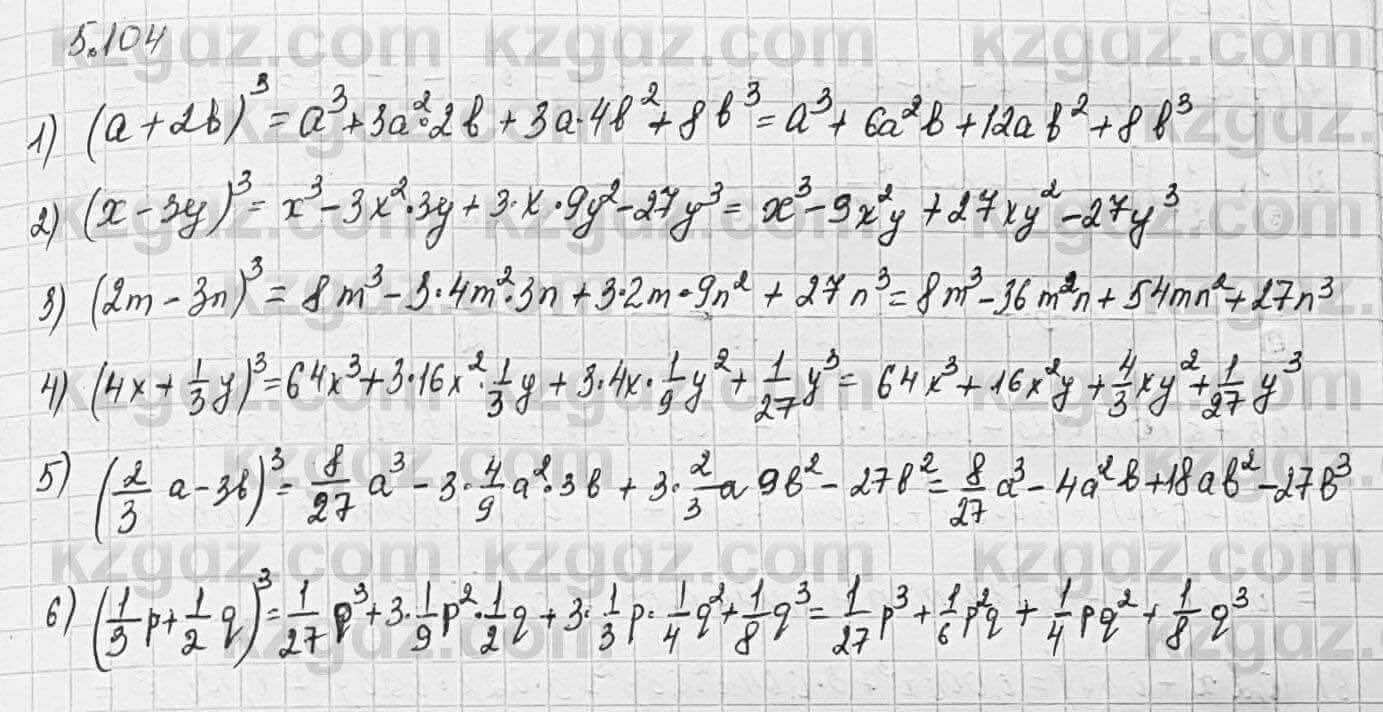 5.104
1) (a + 2b)³ = a³ + 3a²·2b + 3a·4b² + 8b³ = a³ + 6a²b + 12ab² + 8b³
2) (x - 3y)³ = x³ - 3x²·3y + 3·x·9y² - 27y³ = x³ - 9x²y + 27xy² - 27y³
3) (2m - 3n)³ = 8m³ - 3·4m²·3n + 3·2m·9n² + 27n³ = 8m³ - 36m²n + 54mn² + 27n³
4) (4x + 1/3 y)³ = 64x³ + 3·16x²·1/3 y + 3·4x·1/9 y² + 1/27 y³ = 64x³ + 16x²y + 4/3 xy² + 1/27 y³
5) (2/3 a - 3b)³ = 8/27 a³ - 3·4/9 a²·3b + 3·2/3 a 9b² - 27b² = 8/27 a³ - 4a²b + 18ab² - 27b³
6) (1/3 p + 1/2 q)³ = 1/27 p³ + 3·1/9 p²·1/2 q + 3·1/3 p·1/4 q² + 1/8 q³ = 1/27 p³ + 1/6 p²q + 1/4 pq² + 1/8 q³
kzgdz.com